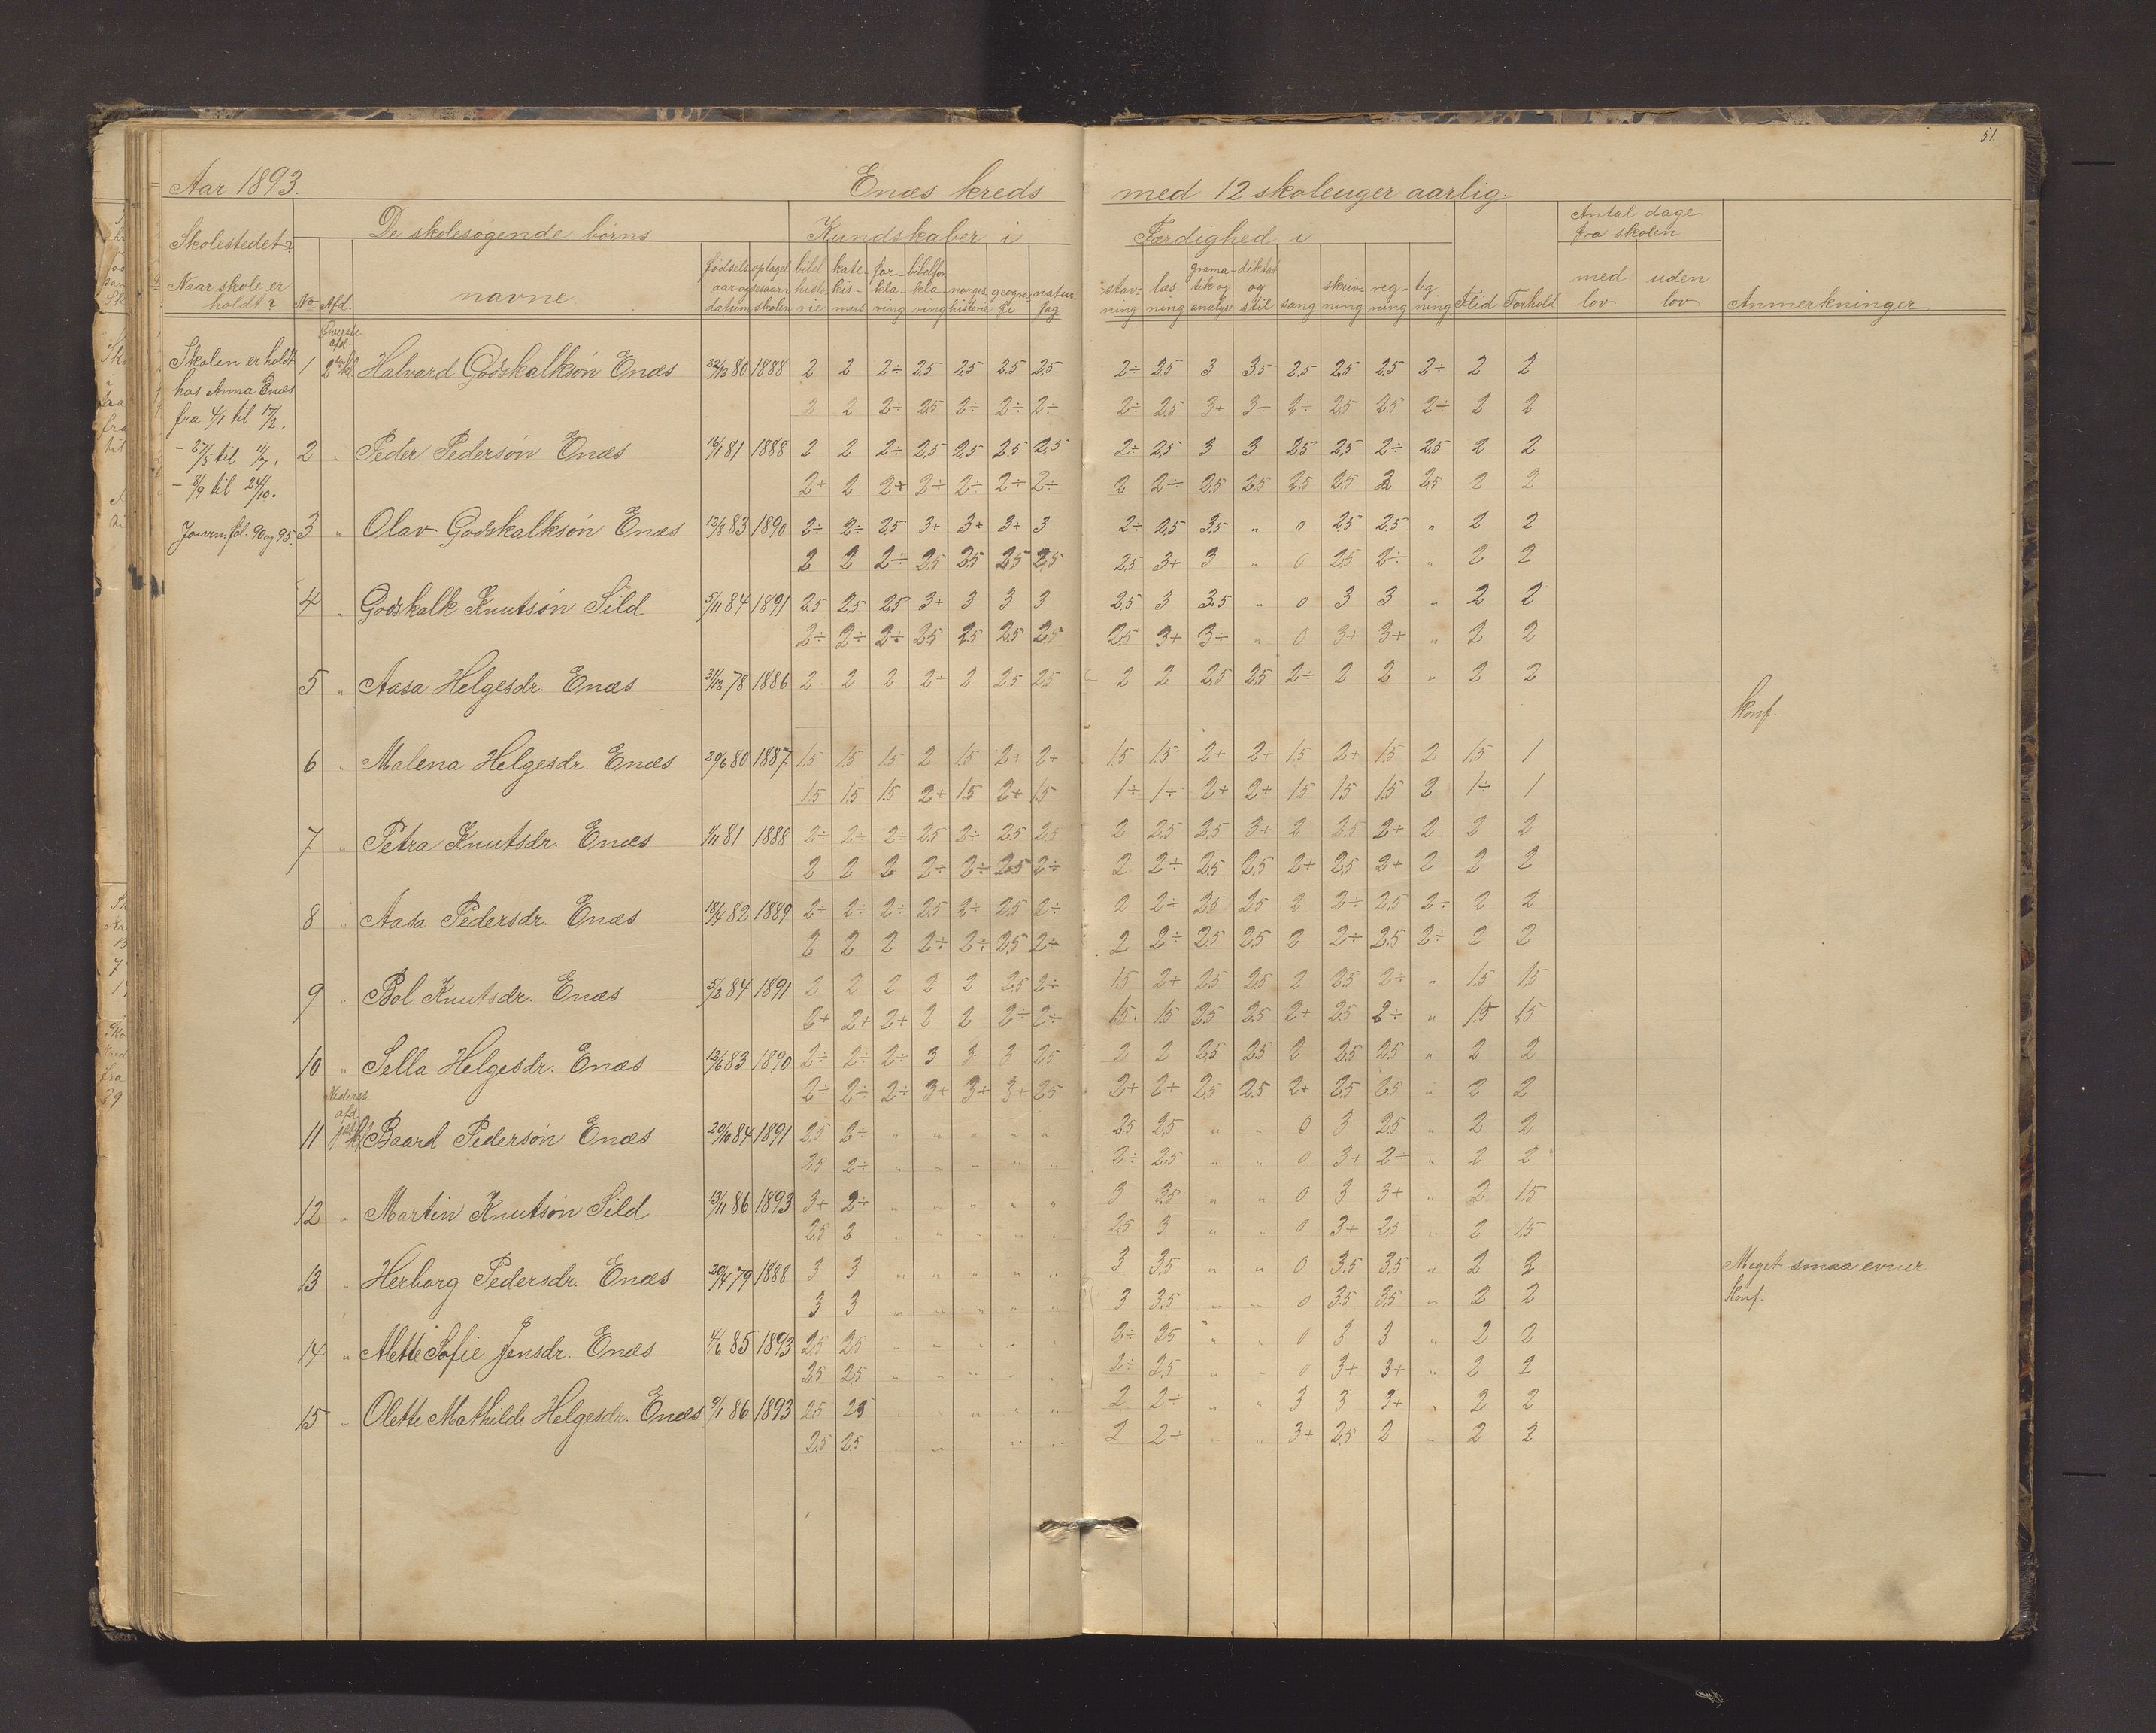 51.
Aar 1893. Enæs kreds med 12 skoleuger aarlig.
Skolestedet? De skolesøgende børns Kundskaber i Færdighed i Antal dage fra skolen
Naar skole er holdt? No Afd. navne fødselsaar og datum optagelsesaar i skolen bibelhistorie katekismus forklaring bibelforklaring norgeshistorie geografi naturfag stavning læsning gramatik og analyse diktat og stil sang skrivning regning tegning Flid Forhold med lov uden lov Anmerkninger
Skolen er holdt
hos Anna Enæs
fra 4/1 til 17/2.
- 27/5 til 11/7.
- 8/9 til 24/10.
Journ. fol. 90 og 95.
Øverste afd.
1 Halvard Godskalksøn Enæs 22/12 80 1888 2 2 2÷ 2,5 2,5 2,5 2,5 2÷ 2,5 3 3,5 2,5 2,5 2,5 2÷ 2 2
2 2 2÷ 2,5 2÷ 2÷ 2÷ 2÷ 2,5 3+ 3÷ 2÷ 2,5 2,5 2÷ 2 2
2 " Peder Pedersøn Enæs 16/1 81 1888 2 2 2÷ 2,5 2,5 2,5 2,5 2÷ 2,5 3 3 2,5 2,5 2÷ 2,5 2 2
2+ 2 2÷ 2÷ 2÷ 2÷ 2÷ 2 2÷ 2,5 2,5 2,5 2,5 2 2,5 2 2
3 " Olav Godskalksøn Enæs 12/8 83 1890 2÷ 2÷ 2,5 3+ 3+ 3+ 3 2÷ 2,5 3,5 " 0 2,5 2,5 " 2 2
2 2 2÷ 2,5 2,5 2,5 2,5 2,5 3+ 3 " 0 2,5 2÷ " 2 2
4 " Godskalk Knutsøn Sild 5/11 84 1891 2,5 2,5 2,5 3+ 3 3 3 2,5 3 3,5 " 0 3 3 " 2 2
2÷ 2÷ 2÷ 2,5 2,5 2,5 2,5 2,5 3+ 3÷ " 0 3+ 3+ " 2 2
5 " Aasa Helgesdr. Enæs 31/12 78 1886 2 2 2 2÷ 2 2,5 2,5 2 2 2,5 2,5 2÷ 2 2 " 2 2
Konf.
6 " Malena Helgesdr. Enæs 29/6 80 1887 1,5 1,5 1,5 2 1,5 2+ 2+ 1,5 1,5 2+ 2+ 1,5 2+ 1,5 2 1,5 1
1,5 1,5 1,5 2+ 1,5 2+ 1,5 1÷ 1÷ 2+ 2+ 1,5 1,5 1,5 2 1÷ 1
7 " Petra Knutsdr. Enæs 1/11 81 1888 2÷ 2÷ 2÷ 2,5 2÷ 2,5 2,5 2 2,5 2,5 3+ 2 2,5 2+ 2 2 2
2 2 2 2÷ 2÷ 2,5 2÷ 2 2÷ 2,5 2,5 2+ 2,5 2+ 2 2 2
8 " Aasa Pedersdr. Enæs 18/4 82 1889 2÷ 2÷ 2÷ 2,5 2÷ 2,5 2÷ 2 2÷ 2,5 2,5 2 2÷ 2,5 2÷ 2 2
2 2 2 2÷ 2÷ 2,5 2÷ 2 2÷ 2,5 2,5 2 2÷ 2,5 2÷ 2 2
9 " Bol Knutsdr. Enæs 5/2 84 1891 2 2 2 2 2 2,5 2÷ 1,5 2+ 2,5 2,5 2 2,5 2÷ " 1,5 1,5
2+ 2+ 2+ 2 2 2÷ 2÷ 1,5 1,5 2,5 2,5 2+ 2,5 2÷ " 1,5 1,5
10 " Sella Helgesdr. Enæs 12/6 83 1890 2÷ 2÷ 2÷ 3 3 3 2,5 2 2 2,5 2,5 2 2,5 2,5 " 2 2
2÷ 2÷ 2÷ 3+ 3+ 3+ 2,5 2+ 2+ 2,5 2,5 2+ 2,5 2,5 " 2 2
Nederste afd.
11 Baard Pedersøn Enæs 20/10 84 1891 2,5 2÷ " " " " " 2,5 2,5 " " 0 3 2,5 " 2 2
2,5 2÷ " " " " " 2÷ 2,5 " " 0 3+ 2÷ " 2 2
12 " Martin Knutsøn Sild 13/11 86 1893 3+ 2÷ " " " " " 3 3,5 " " 0 3 3+ " 2 1,5
2,5 2 " " " " " 2,5 3 " " 0 3+ 2,5 " 2 1,5
13 " Herborg Pedersdr. Enæs 20/4 79 1888 3 3 " " " " " 3 3,5 " " 0 3,5 3,5 " 2 2 Meget smaa evner
3 3 " " " " " 3 3,5 " " 0 3,5 3,5 " 2 2 Konf.
14 " Mette Sofie Jensdr. Enæs 4/6 85 1893 2,5 2,5 " " " " " 2÷ 2,5 " " 0 3 3 " 2 2
2,5 2,5 " " " " " 2÷ 2,5 " " 0 3+ 3+ " 2 2
15 " Olette Mathilde Helgesdr. Enæs 9/1 86 1893 2,5 2,5 " " " " " 2 2÷ " " 3 3 3+ " 2 2
2,5 2,5 " " " " 2 2÷ " " 3+ 2,5 2 " 2 2